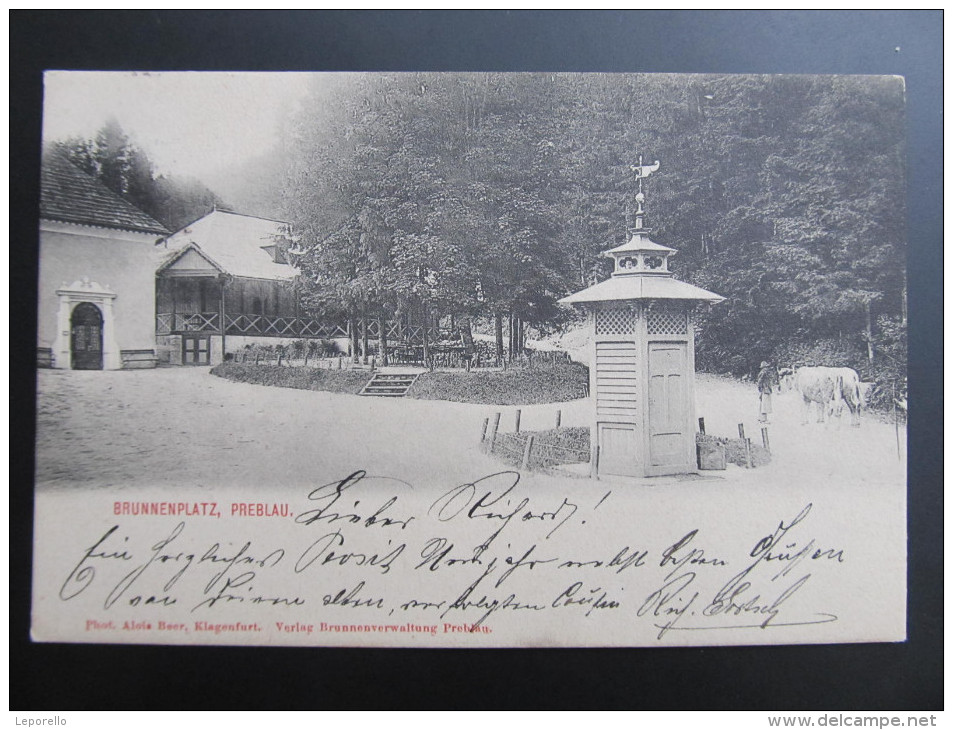 BRUNNENPLATZ, PREBLAU.
Lieber Richard!
Ein herzliches Prosit Neujahr nebst besten Grüssen
von Deinem alten, verfolgten Cousin Rich.
Phot. Alois Beer, Klagenfurt. Verlag Brunnenverwaltung Preblau.
Leporello
www.delcampe.net